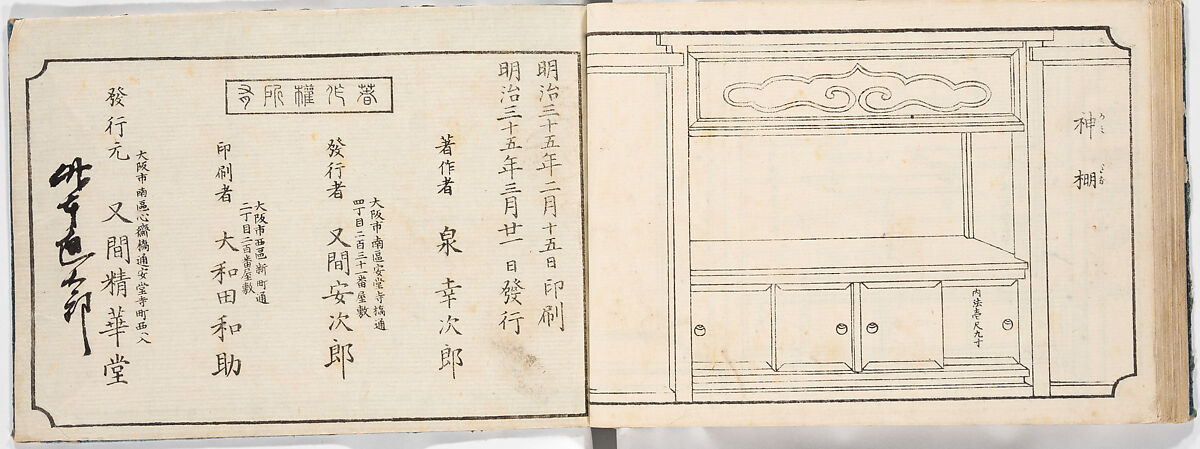 神棚
かみだな
内法壱尺九寸
明治三十五年二月十五日印刷
明治三十五年三月廿一日發行
著作權所有
著作者 泉幸次郎
大阪市南區安堂寺橋通
四丁目二百三十一番屋敷
發行者 又間安次郎
大阪市西區新町通
二丁目二百番屋敷
印刷者 大和田和助
大阪市南區心齋橋通安堂寺町西入
發行元 又間精華堂